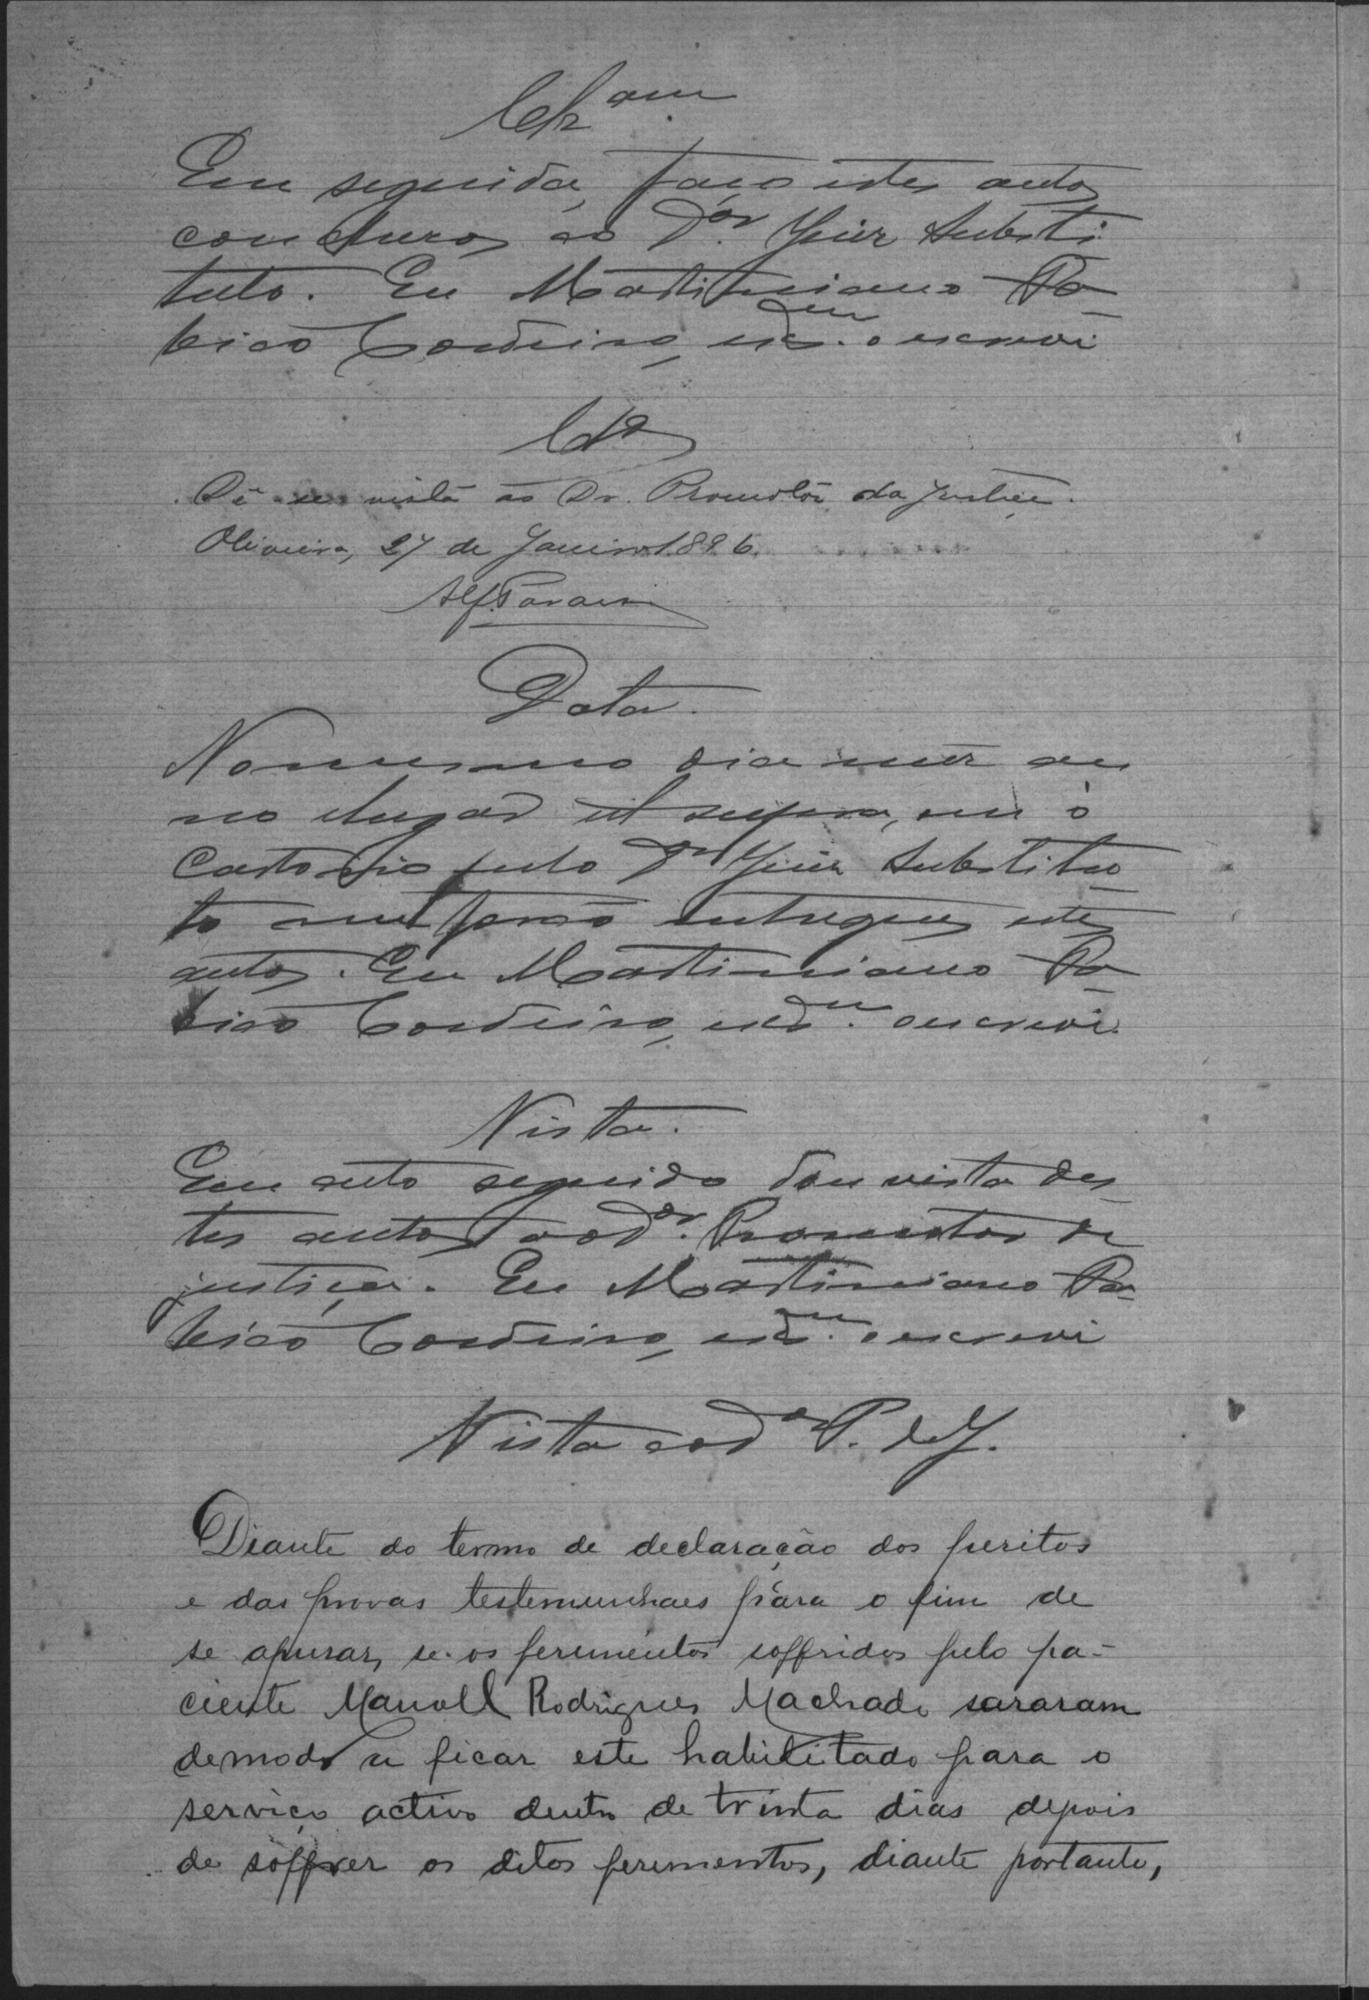 Clz.am
Em seguida, faço estes autos
conclusos ao Dor. Juiz Substi
tuto. Eu Martimiano Pa
ricio Cordeiro, escram. o escrevi
Clos
Dê-se vista ao Dr. Promotôr da Justiça.
Oliveira, 27 de Janeiro 1896.
Data.
No mesmo dia mez an
no e lugar ut supra, em o
Cartorio pelo Dor Juiz Substitu
to me forão entregues estes
autos. Eu Martimiano Pa
ricio Cordeiro, o escrevi.
Vista.
Em acto seguido dou vista des
tes autos ao Dor. Promotor de
justiça. Eu Martimiano Pa-
ricio Cordeiro, o escrevi
Vista ao Dor P. de J.
Diante do termo de declaração dos peritos
e das provas testemunhaes para o fim de
se apurar, se os ferimentos soffridos pelo pa-
ciente Manoel Rodrigues Machado sararam
de modo a ficar este habilitado para o
serviço activo dentro de trinta dias depois
de soffrer os ditos ferimentos, diante portanto,